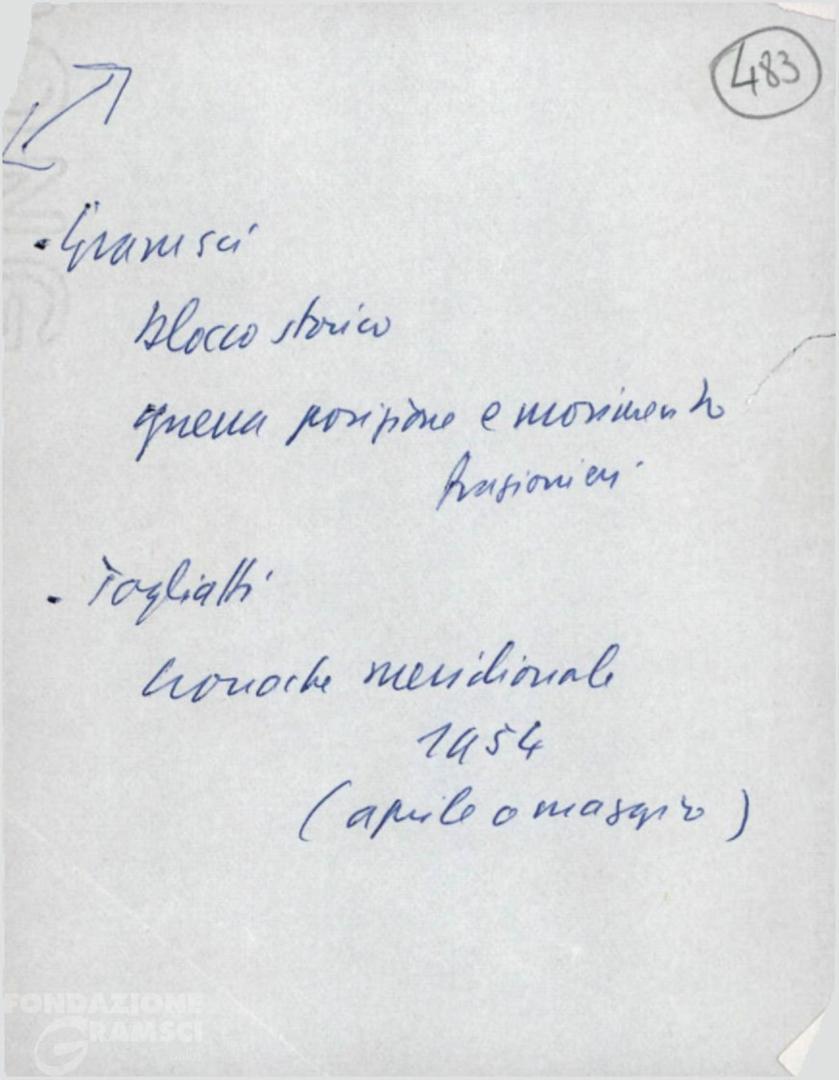 483
· Gramsci
blocco storico
guerra posizione e movimento
Ragionieri
· Togliatti
cronache meridionale
1954
(aprile o maggio)
FONDAZIONE
GRAMSCI